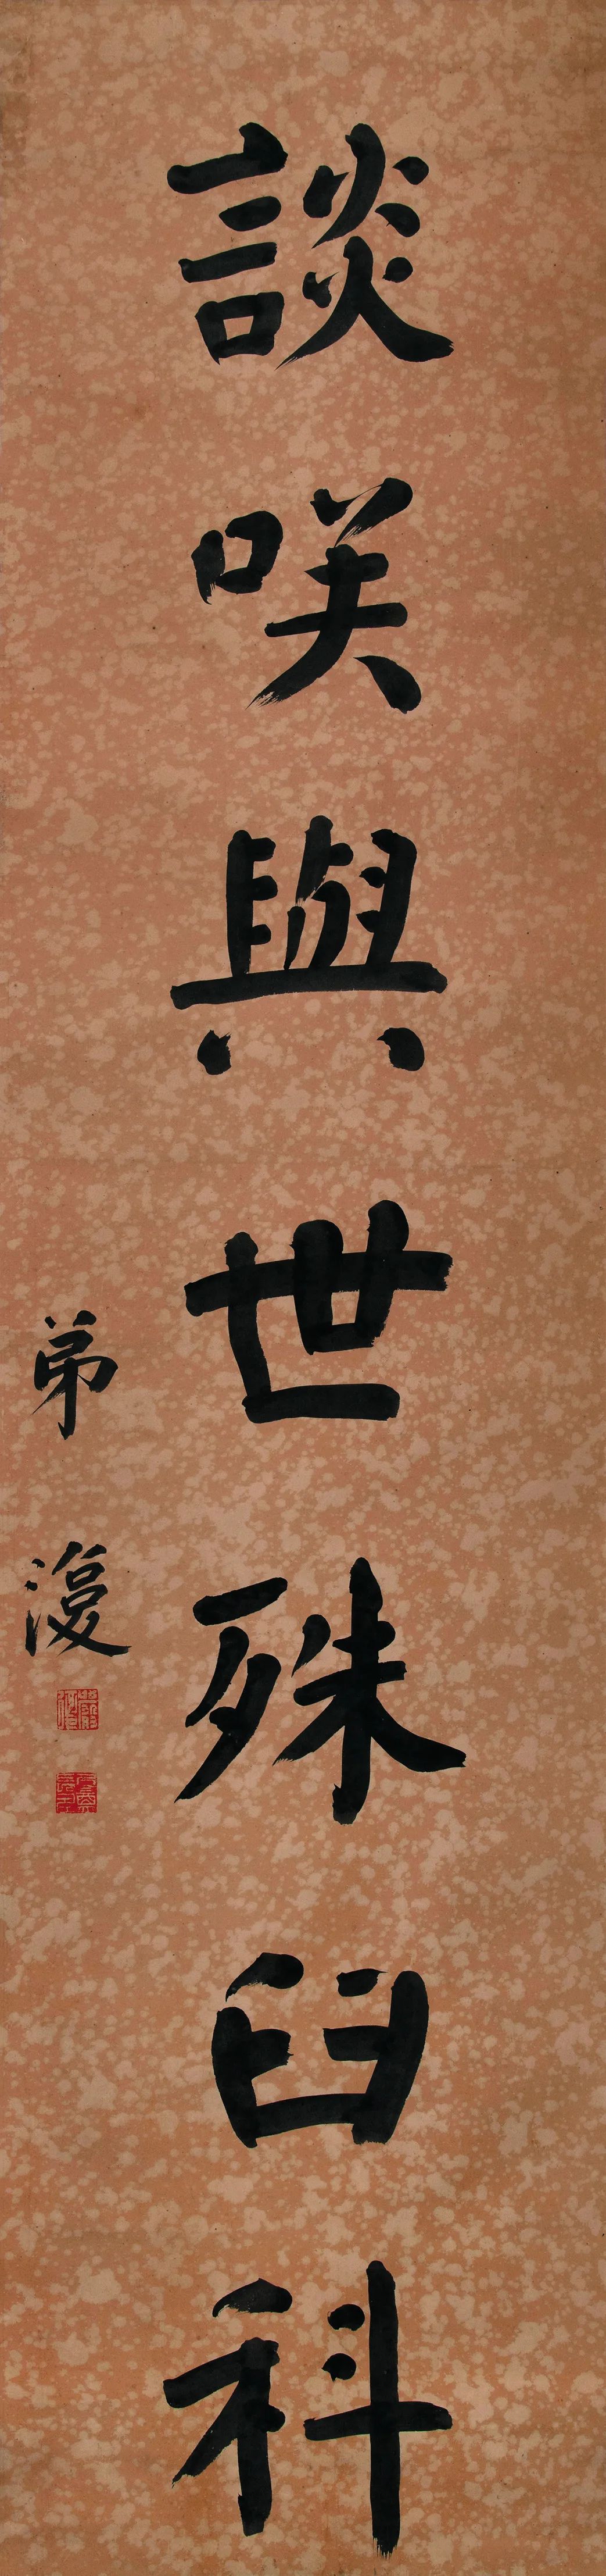 談咲與世殊臼科
弟澓